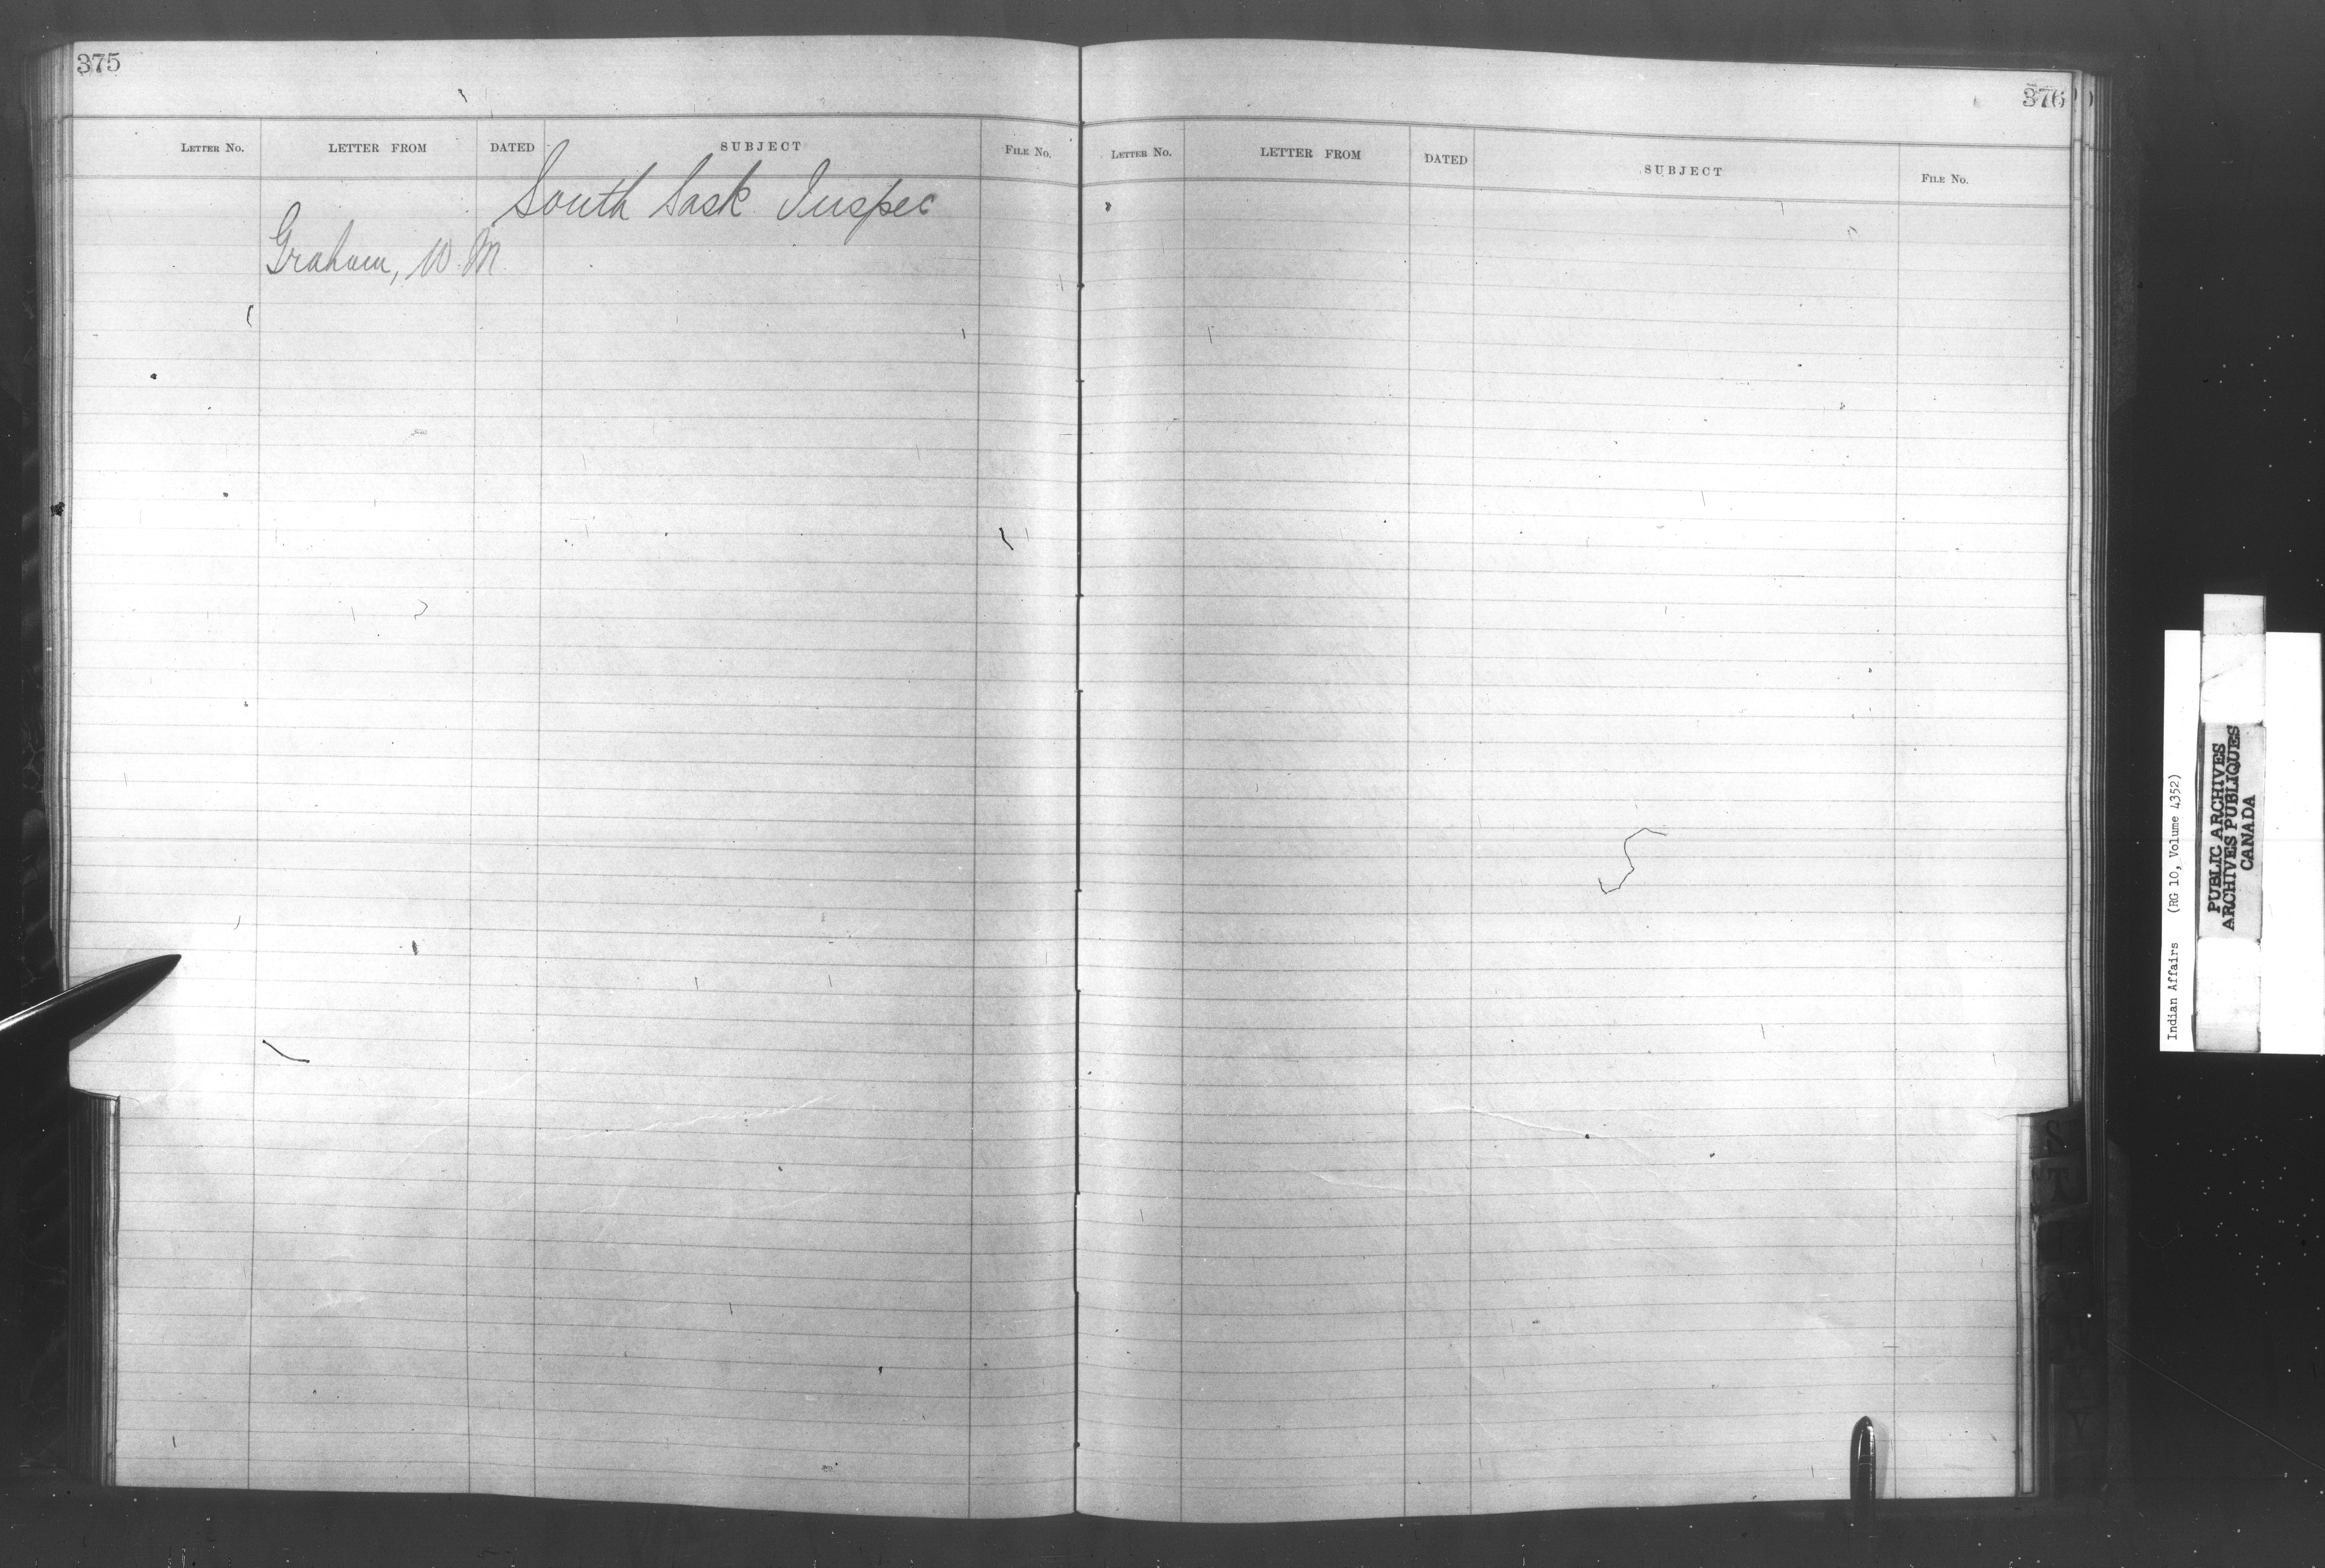 375
LETTER No. LETTER FROM DATED SUBJECT FILE No.
South Sask Inspec
Graham, W. M.
376
LETTER No. LETTER FROM DATED SUBJECT FILE No.
S
T
Y
Indian Affairs (RG 10, Volume 4352)
PUBLIC ARCHIVES
ARCHIVES PUBLIQUES
CANADA